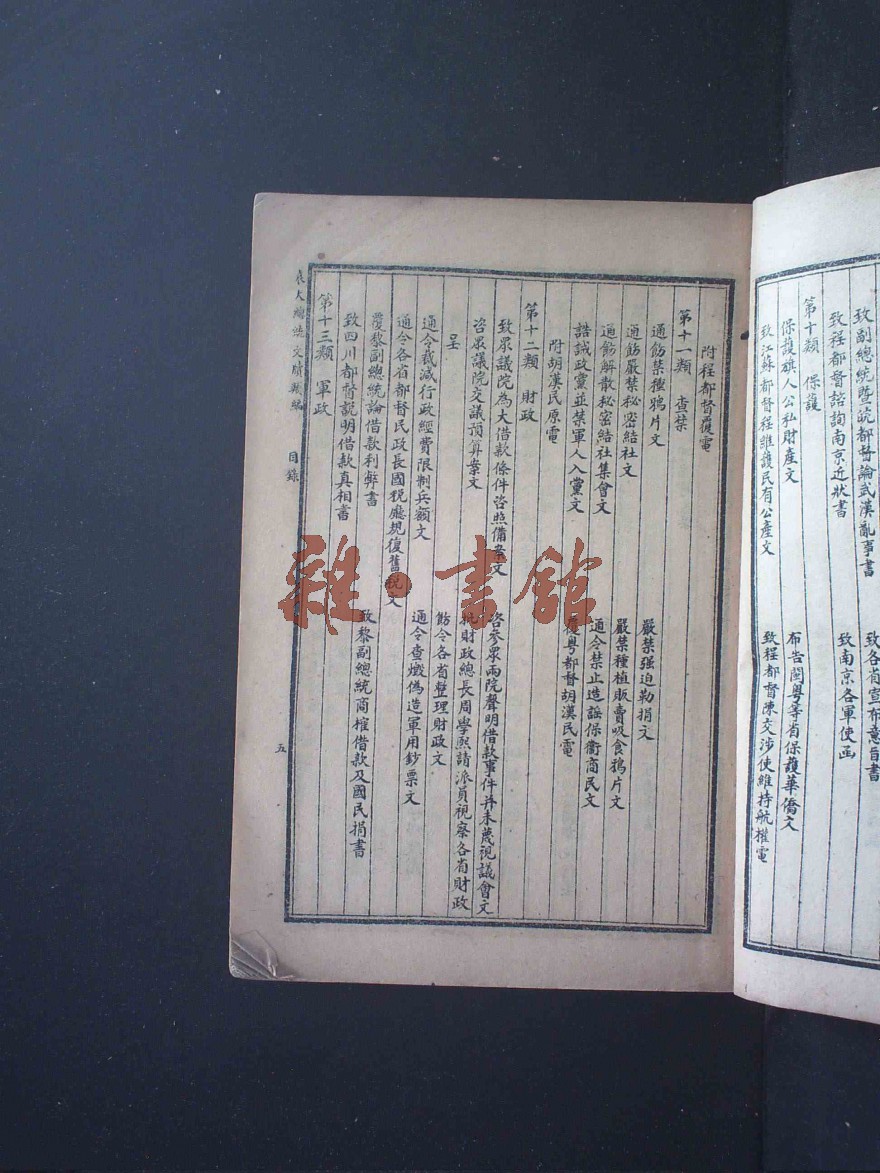 致各省宣布意旨書
致副總統暨皖都督論武漢亂事書
致南京各軍使函
致程都督諮詢南京近狀書
第十類 保護
保護旗人公私財產文
布告閩粵等省保護華僑文
致江蘇都督程維護民有公產文
致程都督陳交涉使維持航權電
附程都督覆電
第十一類 查禁
通飭禁種鴉片文
嚴禁强迫勒捐文
通飭嚴禁秘密結社文
嚴禁種植販賣吸食鴉片文
通飭解散秘密結社集會文
通令禁止造謡保衛商民文
誥誡政黨並禁軍人入黨文
覆粵都督胡漢民電
附胡漢民原電
第十二類 財政
致眾議院為大借款條件咨照備案文
咨參眾兩院聲明借款事件並未蔑視議會文
咨眾議院交議預算案文
批財政總長周學熙請派員視察各省財政
呈
飭令各省整理財政文
通令裁減行政經費限制兵額文
通令查燬偽造軍用鈔票文
通令各省都督民政長國稅廳規復舊稅文
覆黎副總統論借款利弊書
致黎副總統商榷借款及國民捐書
致四川都督説明借款真相書
第十三類 軍政
袁大總統文牘類編
目錄
五
雜·書館